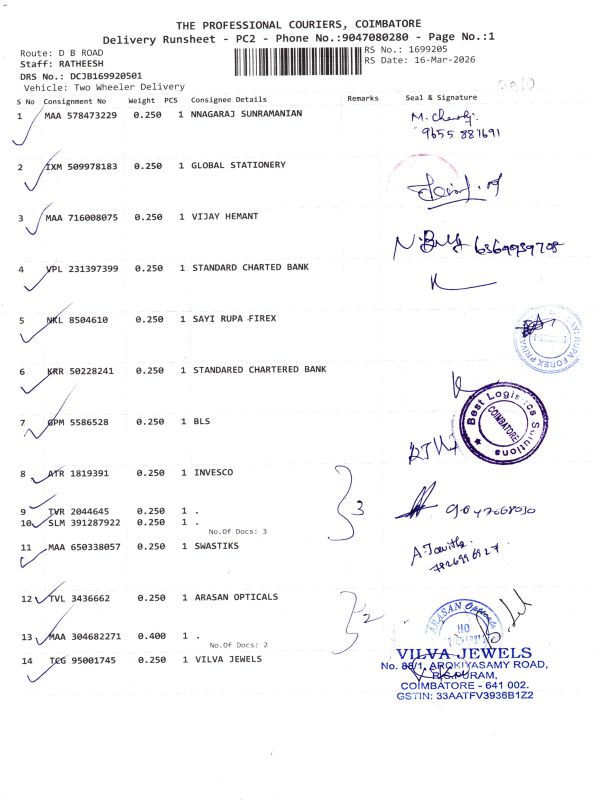 THE PROFESSIONAL COURIERS, COIMBATORE
Delivery Runsheet - PC2 - Phone No.:9047080280 - Page No.:1
Route: D B ROAD
RS No.: 1699205
Staff: RATHEESH
RS Date: 16-Mar-2026
DRS No.: DCJB169920501
Vehicle: Two Wheeler Delivery
S No Consignment No Weight PCS Consignee Details Remarks Seal & Signature
1 MAA 578473229 0.250 1 NNAGARAJ SUNRAMANIAN
9655 881691
2 IXM 509978183 0.250 1 GLOBAL STATIONERY
3 MAA 716008075 0.250 1 VIJAY HEMANT
4 VPL 231397399 0.250 1 STANDARD CHARTED BANK
5 NKL 8504610 0.250 1 SAYI RUPA FIREX
6 KRR 50228241 0.250 1 STANDARED CHARTERED BANK
7 GPM 5586528 0.250 1 BLS
Best Logistics Solutions
COIMBATORE
8 ATR 1819391 0.250 1 INVESCO
3
9 TVR 2044645 0.250 1 .
10 SLM 391287922 0.250 1 .
No.Of Docs: 3
11 MAA 650338057 0.250 1 SWASTIKS
12 TVL 3436662 0.250 1 ARASAN OPTICALS
2
ARASAN Opticals
HO
13 MAA 304682271 0.400 1 .
No.Of Docs: 2
14 TCG 95001745 0.250 1 VILVA JEWELS
VILVA JEWELS
No. 88/1, AROKIYASAMY ROAD,
R.S.PURAM,
COIMBATORE - 641 002.
GSTIN: 33AATFV3936B1Z2